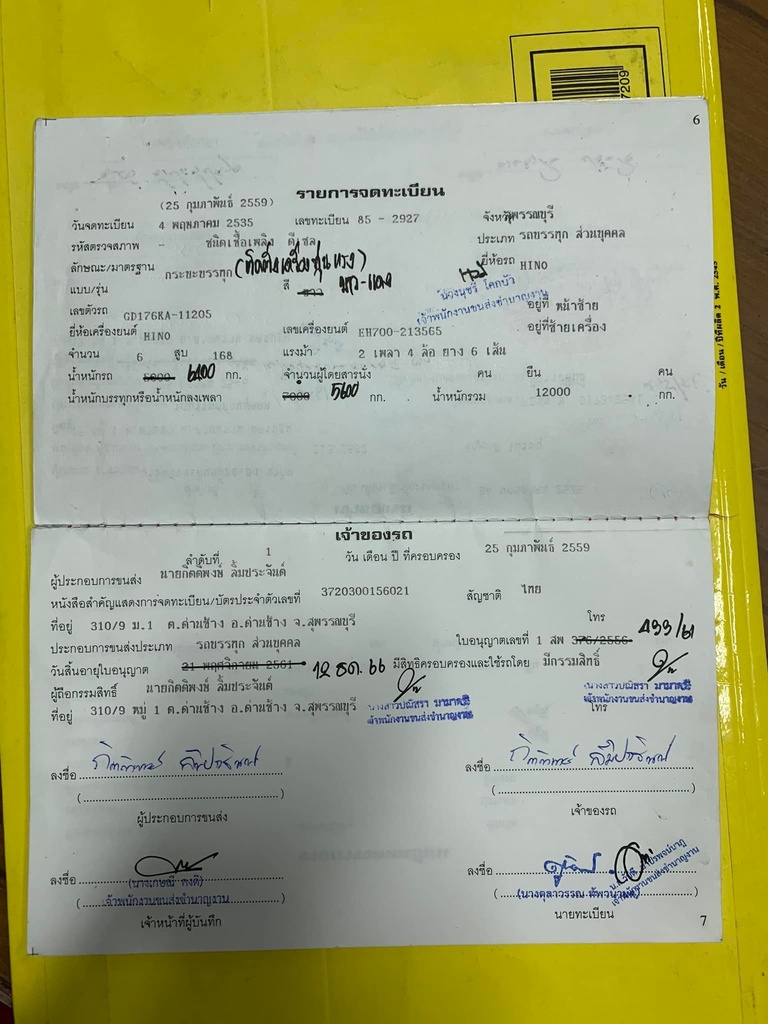 7209
6
รายการจดทะเบียน
(25 กุมภาพันธ์ 2559)
วันจดทะเบียน 4 พฤษภาคม 2535 เลขทะเบียน 85 - 2927 จังหวัด สุพรรณบุรี
รหัสตรวจสภาพ - ชนิดเชื้อเพลิง ดีเซล ประเภท รถบรรทุก ส่วนบุคคล
ลักษณะ/มาตรฐาน กระบะบรรทุก ยี่ห้อรถ HINO
แบบ/รุ่น สี ขาว เทา-แดง
นางนุชรี โคกบัว
เจ้าพนักงานขนส่งชำนาญงาน
เลขตัวรถ GD176KA-11205 อยู่ที่ หน้าซ้าย
ยี่ห้อเครื่องยนต์ HINO เลขเครื่องยนต์ EH700-213565 อยู่ที่ ซ้ายเครื่อง
จำนวน 6 สูบ 168 แรงม้า 2 เพลา 4 ล้อ ยาง 6 เส้น
น้ำหนักรถ 5000 6400 กก. จำนวนผู้โดยสารนั่ง คน ยืน คน
น้ำหนักบรรทุกหรือน้ำหนักลงเพลา 7000 5600 กก. น้ำหนักรวม 12000 กก.
เจ้าของรถ
ลำดับที่ 1 วัน เดือน ปี ที่ครอบครอง 25 กุมภาพันธ์ 2559
ผู้ประกอบการขนส่ง นายกิตติพงษ์ ลิ้มประจันต์
หนังสือสำคัญแสดงการจดทะเบียน/บัตรประจำตัวเลขที่ 3720300156021 สัญชาติ ไทย
ที่อยู่ 310/9 ม.1 ต.ด่านช้าง อ.ด่านช้าง จ.สุพรรณบุรี โทร
ประกอบการขนส่งประเภท รถบรรทุก ส่วนบุคคล ใบอนุญาตเลขที่ 1 สพ 376/2556 499/61
วันสิ้นอายุใบอนุญาต 21 พฤศจิกายน 2561 12 ธค. 66 มีสิทธิครอบครองและใช้รถโดย มีกรรมสิทธิ์
ผู้ถือกรรมสิทธิ์ นายกิตติพงษ์ ลิ้มประจันต์
ที่อยู่ 310/9 หมู่ 1 ต.ด่านช้าง อ.ด่านช้าง จ.สุพรรณบุรี โทร
เจ้าพนักงานขนส่งชำนาญงาน
เจ้าพนักงานขนส่งชำนาญงาน
ลงชื่อ ลงชื่อ
ผู้ประกอบการขนส่ง เจ้าของรถ
ลงชื่อ ลงชื่อ
(เจ้าพนักงานขนส่งชำนาญงาน)
เจ้าหน้าที่ผู้บันทึก นายทะเบียน
7